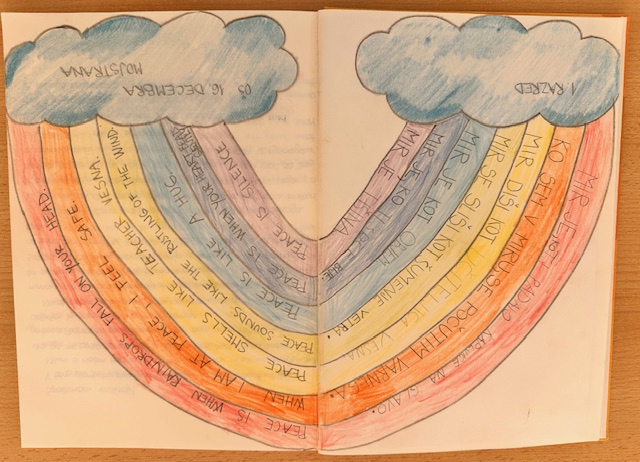 OŠ 16. DECEMBRA
MOJSTRANA
1. RAZRED
MIR JE KOT PADALO NA GLAVO.
KO SEM V MIRU SE POČUTIM VARNEGA.
MIR DIŠI KOT UČITELJICA VESNA.
MIR SE SLIŠI KOT ŠUMENJE VETRA.
MIR JE KOT OBJEM.
MIR JE, KO TI SRCE BIJE
MIR JE TIŠINA
PEACE IS WHEN RAINDROPS FALL ON YOUR HEAD.
WHEN I AM AT PEACE I FEEL SAFE.
PEACE SMELLS LIKE TEACHER VESNA.
PEACE SOUNDS LIKE THE RUSTLING OF THE WIND
PEACE IS LIKE A HUG.
PEACE IS WHEN YOUR HEART BEATS
PEACE IS SILENCE